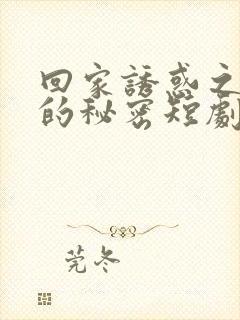 回家誘惑之
的秘密短劇
莞冬